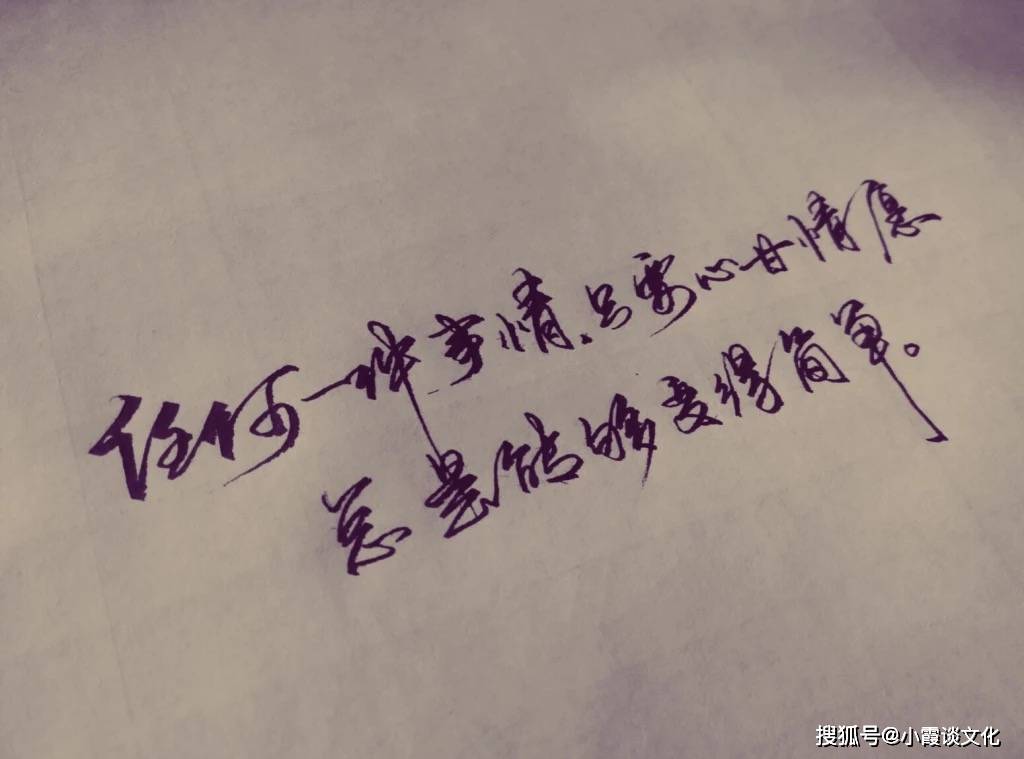 任何一种事情.只要心甘情愿
总是能够变得简单。
搜狐号@小霞谈文化